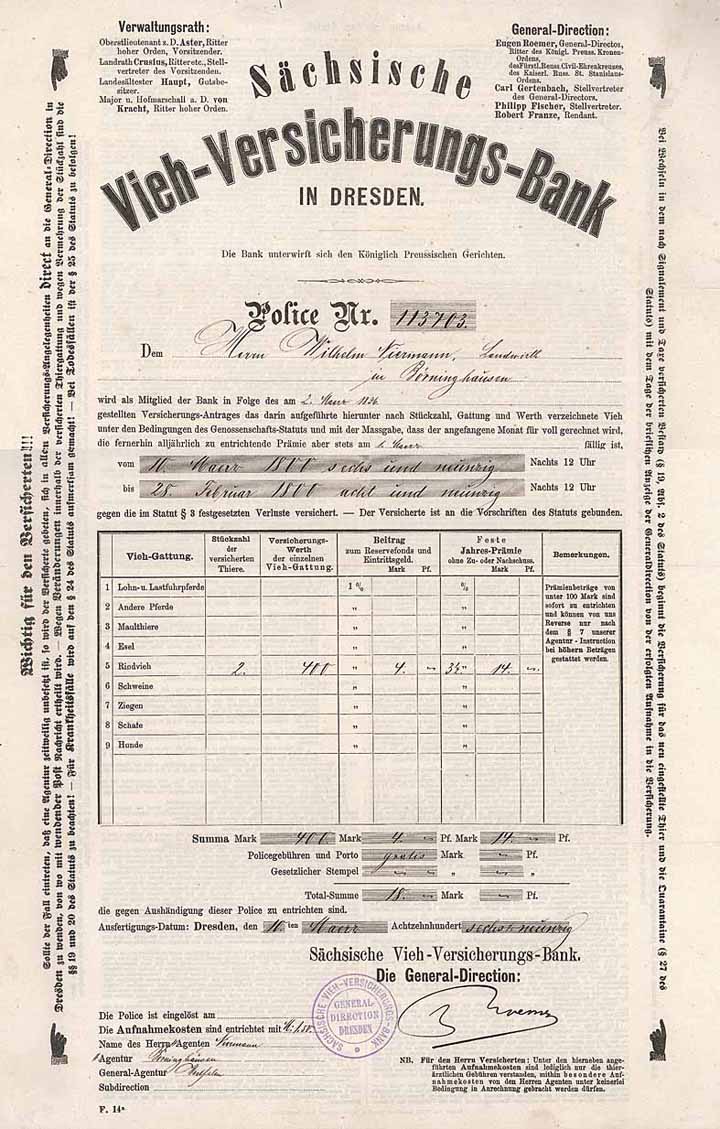 Verwaltungsrath:
Oberstlieutenant z. D. Aster, Ritter
hoher Orden, Vorsitzender.
Landrath Crusius, Ritter etc., Stell-
vertreter des Vorsitzenden.
Landesältester Haupt, Gutsbe-
sitzer.
Major u. Hofmarschall a. D. von
Kracht, Ritter hoher Orden.
General-Direction:
Eugen Roemer, General-Director,
Ritter des Königl. Preuss. Kronen-
Ordens,
des Fürstl. Reuss. Civil-Ehrenkreuzes,
des Kaiserl. Russ. St. Stanislaus-
Ordens.
Carl Gertenbach, Stellvertreter
des General-Directors.
Philipp Fischer, Stellvertreter.
Robert Franze, Rendant.
Sächsische
Vieh-Versicherungs-Bank
IN DRESDEN.
Die Bank unterwirft sich den Königlich Preussischen Gerichten.
Police Nr. 113703.
Dem Herrn Wilhelm Niermann, Landwirth
in Börninghausen
wird als Mitglied der Bank in Folge des am 2. Maerz 1896
gestellten Versicherungs-Antrages das darin aufgeführte hierunter nach Stückzahl, Gattung und Werth verzeichnete Vieh
unter den Bedingungen des Genossenschafts-Statuts und mit der Massgabe, dass der angefangene Monat für voll gerechnet wird,
die fernerhin alljährlich zu entrichtende Prämie aber stets am 1. Maerz fällig ist,
vom 10. Maerz 1800 sechs und neunzig Nachts 12 Uhr
bis 28. Februar 1800 acht und neunzig Nachts 12 Uhr
gegen die im Statut § 3 festgesetzten Verluste versichert. — Der Versicherte ist an die Vorschriften des Statuts gebunden.
Vieh-Gattung. Stückzahl der versicherten Thiere. Versicherungs-Werth der einzelnen Vieh-Gattung. Beitrag zum Reservefonds und Eintrittsgeld. Mark Pf. Feste Jahres-Prämie ohne Zu- oder Nachschuss. Mark Pf. Bemerkungen.
1 Lohn- u. Lastfuhrpferde 1 % %
2 Andere Pferde " "
3 Maulthiere " "
4 Esel " "
5 Rindvieh 2. 400 " 4. - 3½ " 14. -
6 Schweine " "
7 Ziegen " "
8 Schafe " "
9 Hunde " "
Prämienbeträge von
unter 100 Mark sind
sofort zu entrichten
und können von uns
Reverse nur nach
dem § 7 unserer
Agentur-Instruction
bei höhern Beträgen
gestattet werden.
Summa Mark 400 Mark 4. - Pf. Mark 14. - Pf.
Policegebühren und Porto gratis Mark - Pf.
Gesetzlicher Stempel - - " - "
Total-Summe 18. - Mark - Pf.
die gegen Aushändigung dieser Police zu entrichten sind.
Ausfertigungs-Datum: Dresden, den 10 ten Maerz Achtzehnhundert sechs & neunzig
Sächsische Vieh-Versicherungs-Bank.
Die General-Direction:
Roemer
SÄCHSISCHE VIEH-VERSICHERUNGS-BANK
GENERAL-
DIRECTION
DRESDEN
Die Police ist eingelöst am
Die Aufnahmekosten sind entrichtet mit M. 1.50.
Name des Herrn Agenten Niermann
Agentur Börninghausen
General-Agentur
Subdirection
F. 14a
NB. Für den Herrn Versicherten: Unter den hierneben ange-
führten Aufnahmekosten sind lediglich nur die thier-
ärztlichen Gebühren verstanden, mithin besondere Auf-
nahmekosten von den Herren Agenten unter keinerlei
Bedingung in Anrechnung gebracht werden dürfen.
Wichtig für den Versicherten!!!
Sollte der Fall eintreten, daß eine Agentur zeitweilig unbesetzt ist, so wird der Versicherte gebeten, sich in allen Versicherungs-Angelegenheiten direct an die General-Direction in
Dresden zu wenden, von wo mit wendender Post Nachricht ertheilt wird. — Wegen Veränderungen innerhalb der versicherten Thiergattung und wegen Vermehrung der Stückzahl sind die
§§ 19 und 20 des Statuts zu beachten! — Für Krankheitsfälle wird auf den § 24 des Statuts aufmerksam gemacht! — Bei Todesfällen ist der § 25 des Statuts zu befolgen!
Bei Wechseln in dem nach Signalement und Taxe versicherten Bestand (§ 19, Abs. 2 des Statuts) beginnt die Versicherung für das neu eingestellte Thier und die Quarantaine (§ 27 des
Statuts) mit dem Tage der brieflichen Anzeige der Generaldirection von der erfolgten Aufnahme in die Versicherung.